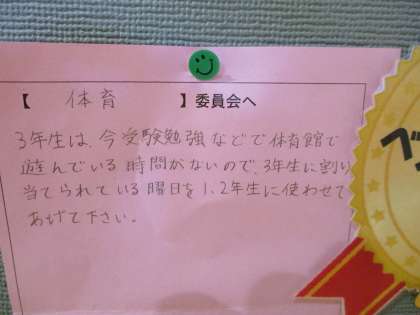 【 体育 】委員会へ
3年生は、今受験勉強などで体育館で
遊んでいる時間がないので、3年生に割り
当てられている曜日を1、2年生に使わせて
あげて下さい。